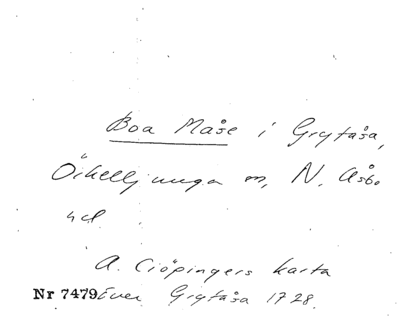 Boa Måse i Grytåsa,
Örkelljunga sn, N. Åsbo
hd.
A. Ciöpingers karta
Nr 7479 över Grytåsa 1728.